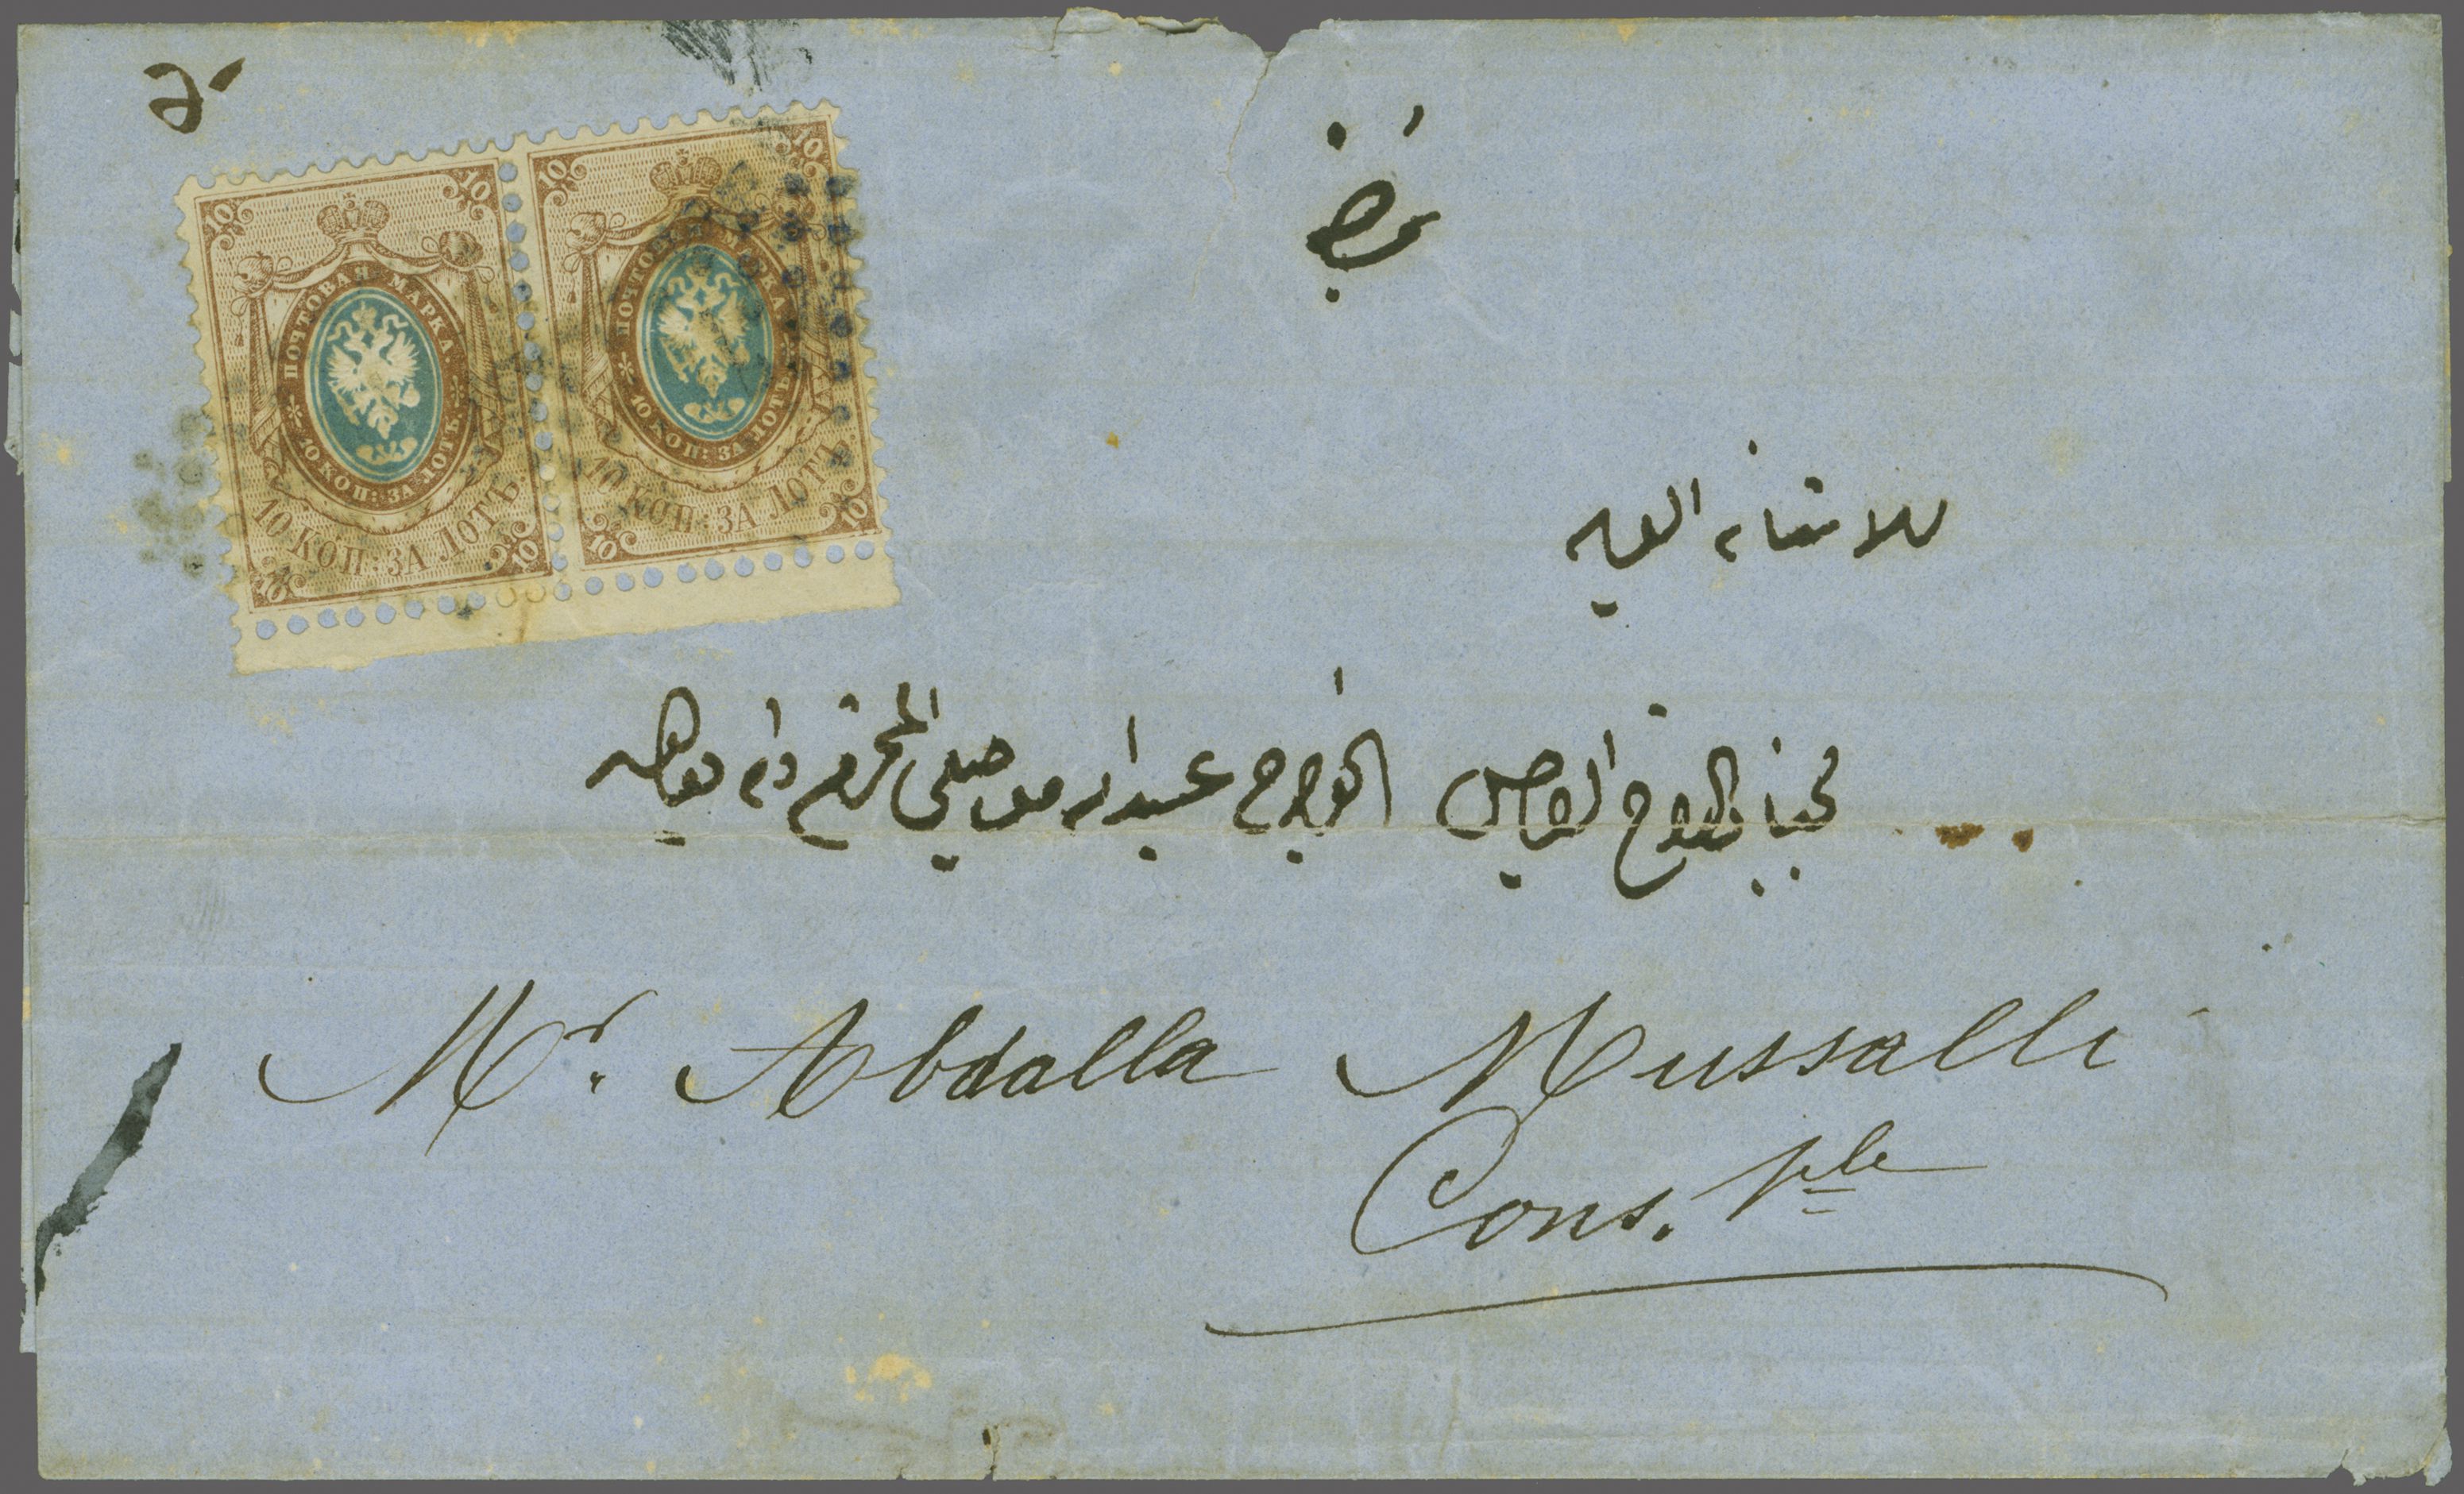 10 10
ПОЧТОВАЯ МАРКА.
* 10 КОП: ЗА ЛОТЪ. *
10 КОП: ЗА ЛОТЪ.
10 10
10 10
ПОЧТОВАЯ МАРКА.
* 10 КОП: ЗА ЛОТЪ. *
10 КОП: ЗА ЛОТЪ.
10 10
للاستانه العليه
الخواجه عبدالله موصلي المحترم دام بقاه
Mr. Abdalla Mussalli
Cons.ple